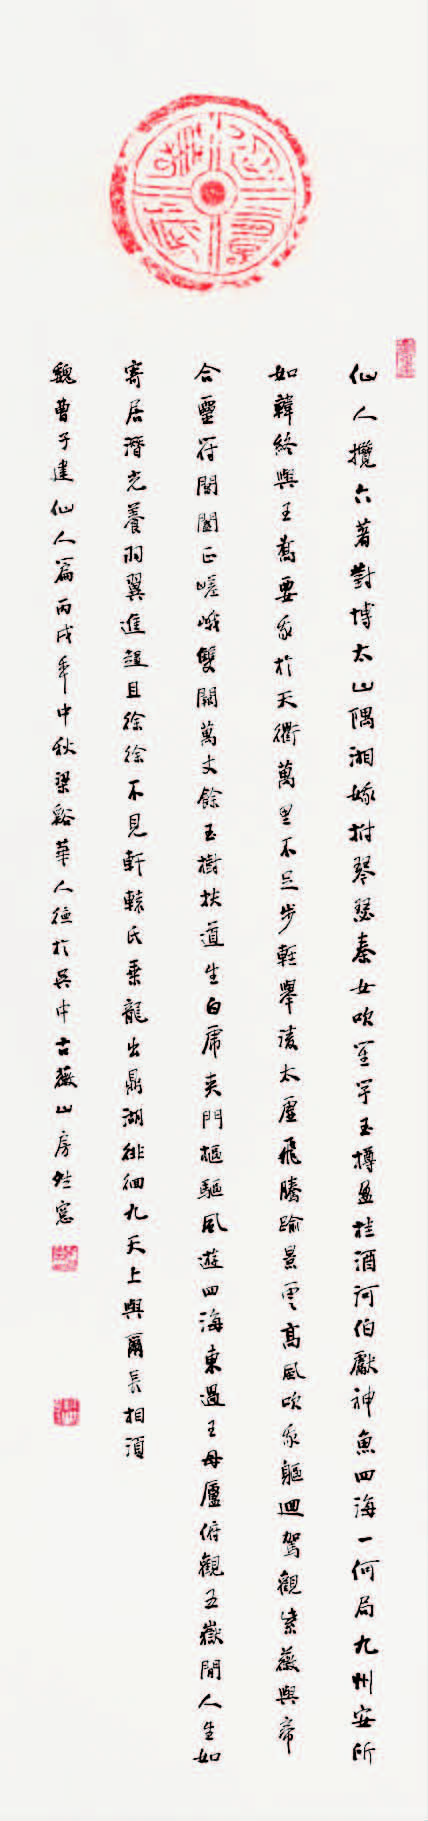 仙人攬六著對博太山隅湘娥拊琴瑟秦女吹笙竽玉樽盈桂酒河伯獻神魚四海一何局九州安所
如韓終與王喬要我於天衢萬里不足步輕舉淩太虛飛騰踰景雲高風吹我軀迴駕觀紫薇與帝
合靈符閶闔正嵯峨雙闕萬丈餘玉樹扶道生白虎夾門樞驅風遊四海東過王母廬俯觀五嶽間人生如
寄居潛光養羽翼進趨且徐徐不見軒轅氏乘龍出鼎湖徘徊九天上與爾長相須
魏曹子建仙人篇丙戌年中秋梁谿華人德於吳中古薇山房